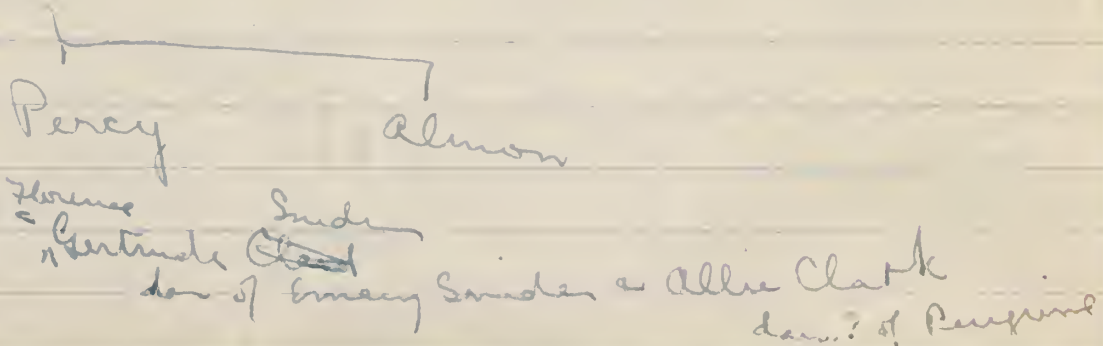 Percy Almon
Florence Snider
Gertrude
dau of Emery Snider & Allie Clark
dau. ? of Peregrine